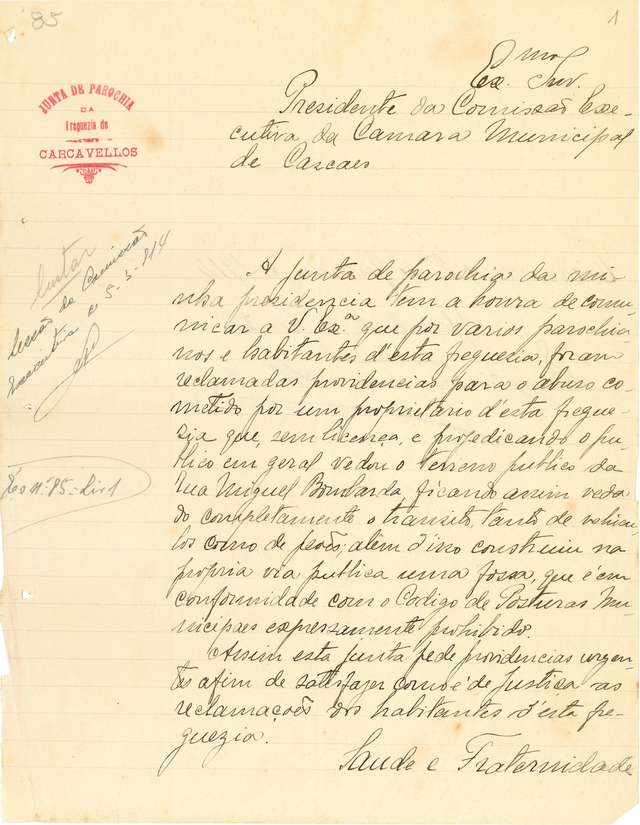 85
1
JUNTA DE PAROCHIA
DA
Freguezia de
CARCAVELLOS
Exmo
Ex. Snr.
Presidente da Comissão Exe-
cutiva da Camara Municipal
de Cascaes
Juntar
Sessão da Comissão
Executiva de 5-3-914
A junta de parochia da mi-
nha presidencia tem a honra de comu-
nicar a V. Exª que por varios parochia-
nos e habitantes d'esta freguezia, foram
reclamadas providencias para o abuso co-
metido por um proprietario d'esta fregue-
sia que, sem licença, e projedicando o pu-
blico em geral vedou o terreno publico da
Rua Miguel Bombarda, ficando assim veda-
do completamente o transito, tanto de vehicu-
los como de peões; além d'isso construiu na
propria via publica uma fossa, que é em
conformidade com o Codigo de Posturas Mu-
nicipaes expressamente prohibido.
nº 85 - Liv 1
Assim esta junta pede providencias urgen-
tes afim de satisfazer como é de justiça as
reclamações dos habitantes d'esta fre-
guezia.
Saude e Fraternidade